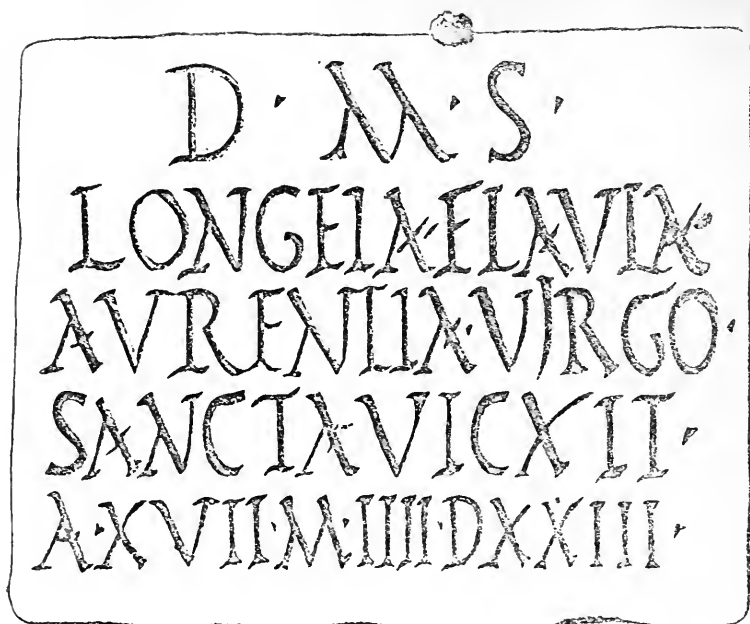 D · M · S ·
LONGEIA · FLAVIA ·
AVRENTIIA · VIRGO ·
SANCTA VICXIT ·
A · XVII · M · IIII · D XXIII ·